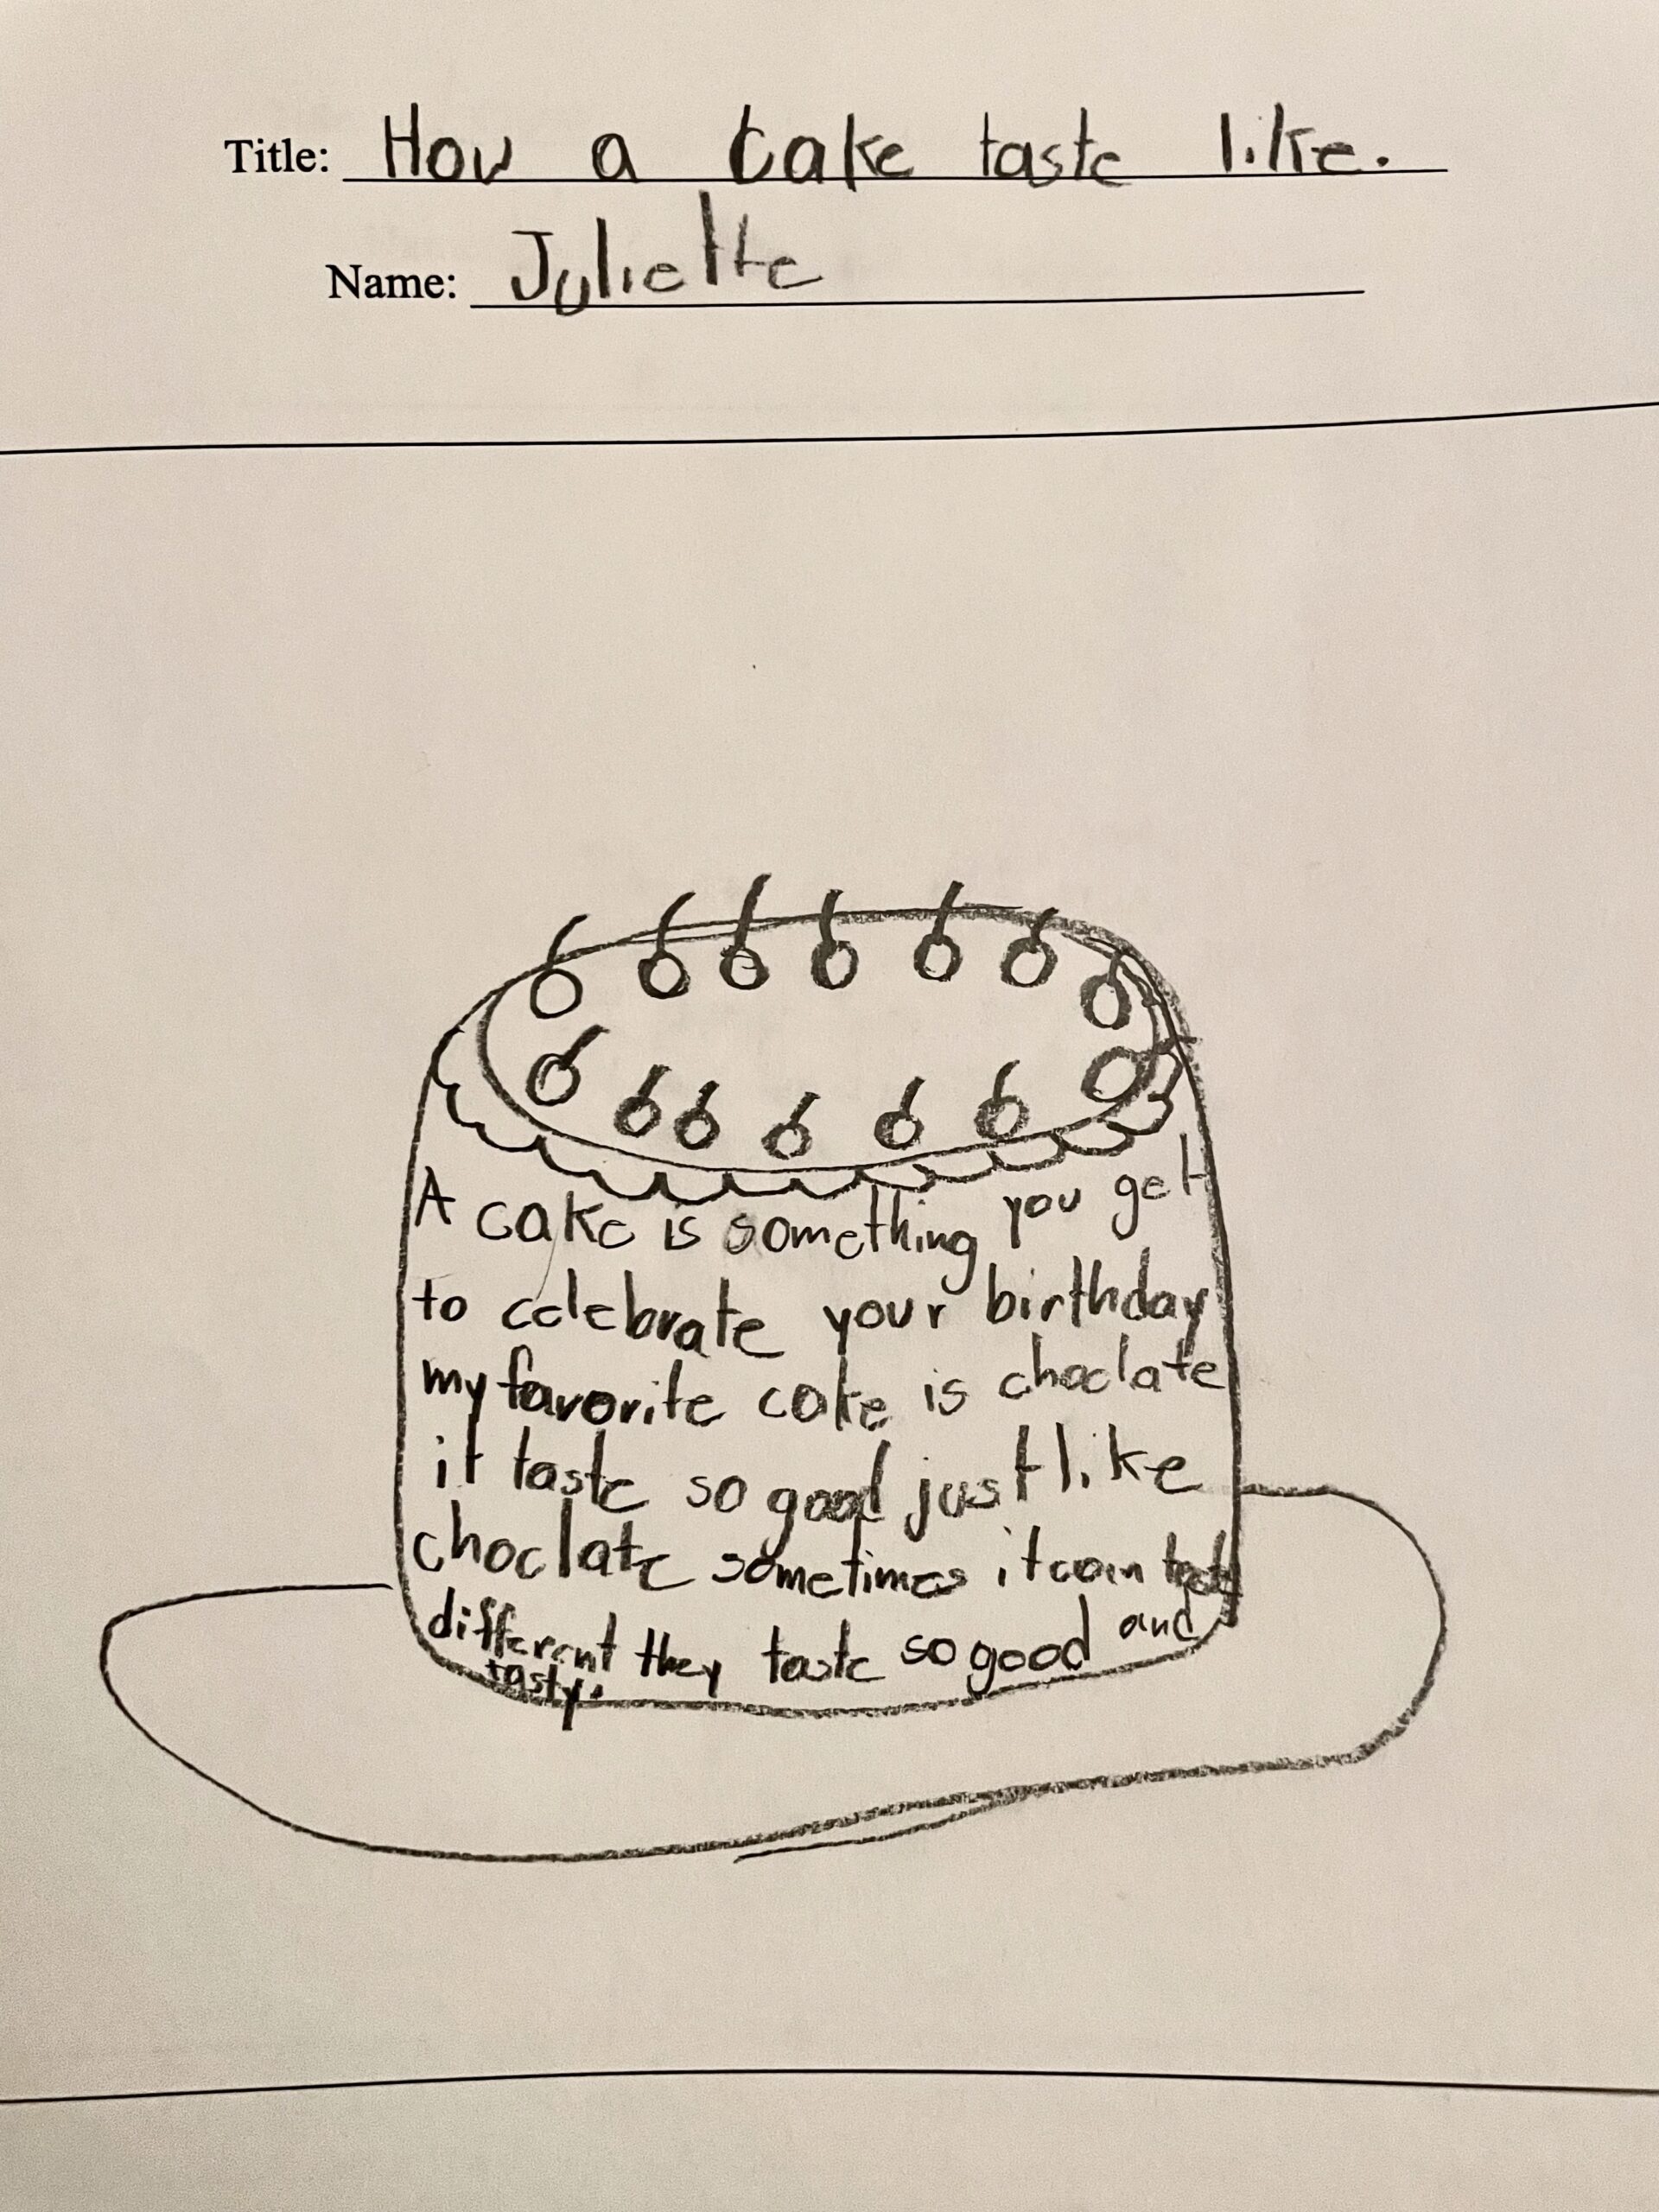 Title: How a Cake taste like.
Name: Juliette
A cake is something you get
to celebrate your birthday
my favorite cake is choclate
it taste so good just like
choclate sometimes it can taste
different they taste so good and
tasty.